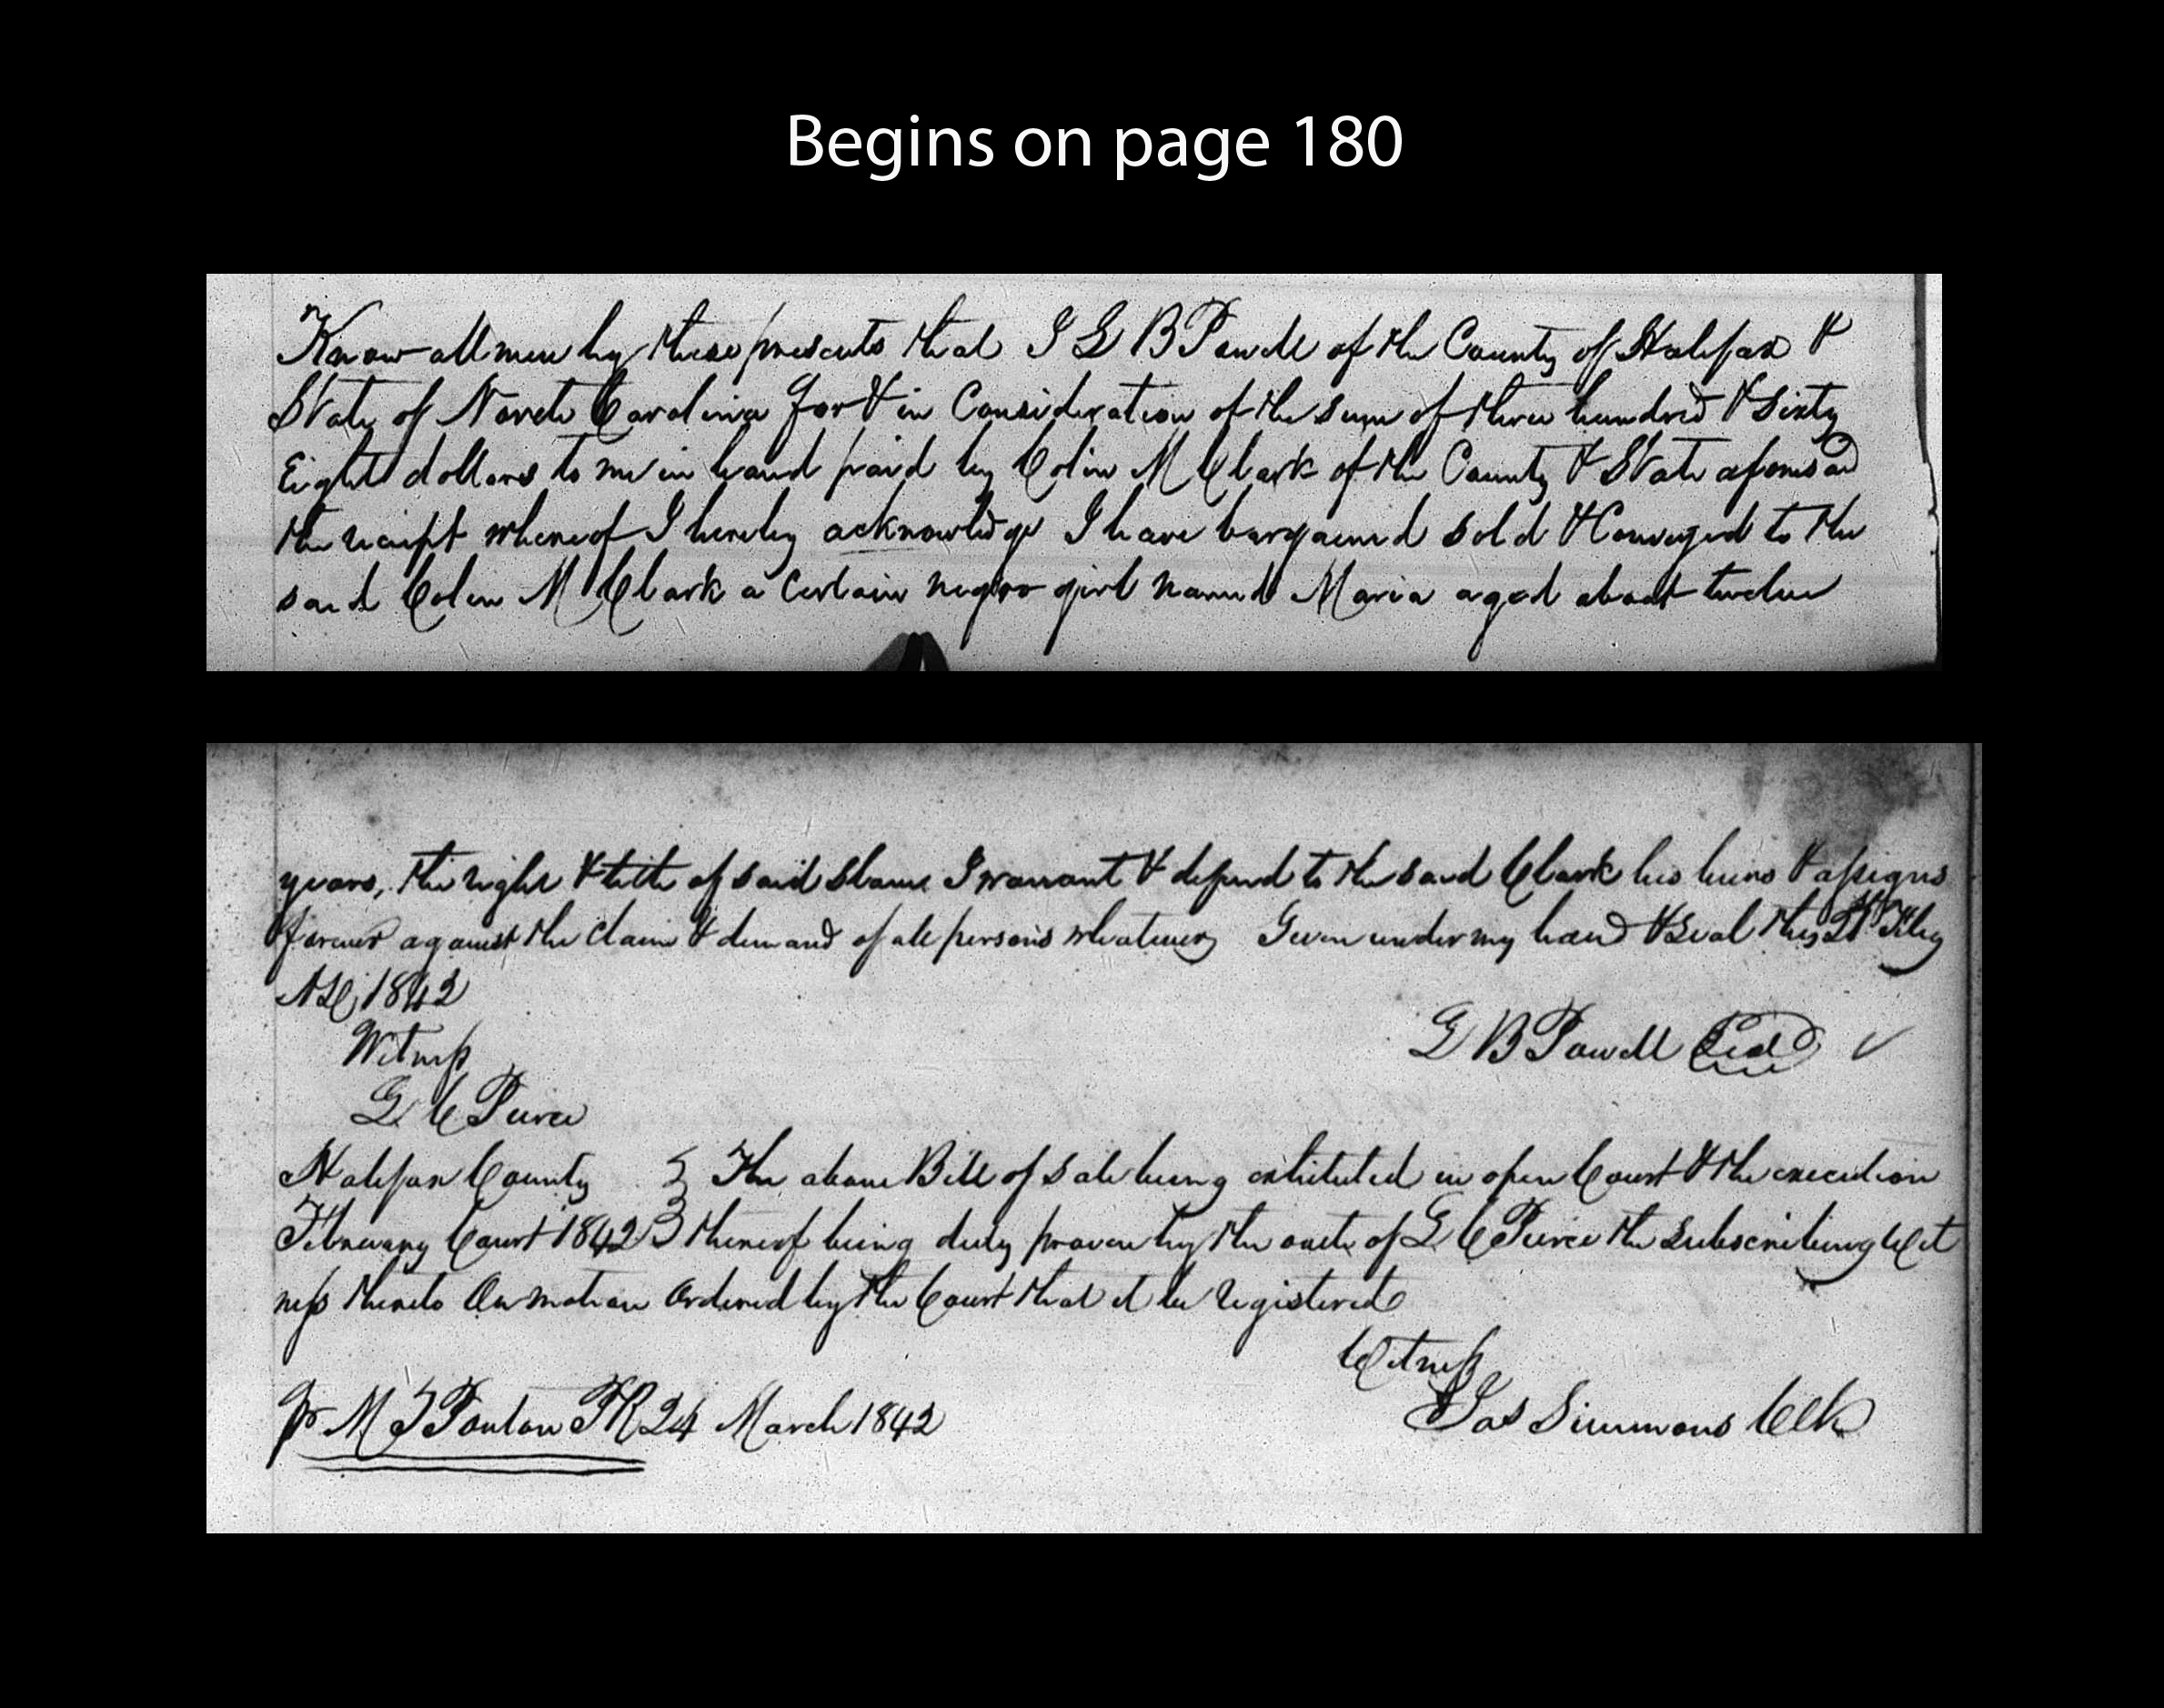 Begins on page 180
Know all men by these presents that I G B Powell of the County of Halifax &
State of North Carolina for & in Consideration of the sum of three hundred & sixty
Eight dollars to me in hand paid by Colin M Clark of the County & State aforesad
the reciept whereof I hereby acknowledge I have bargained sold & Conveyed to the
said Colin M Clark a Certain negro girl named Maria aged about twelve
years, the right & title of said slave I warrant & defend to the said Clark his heirs & assigns
forever against the claim & demand of all persons whatever Given under my hand & seal this Feby
AD, 1842
Witness
G B Powell Seal
G C Pierce
Halifax County The above Bill of Sale being exhibited in open Court & the execution
February Court 1842 thereof being duly proven by the oath of G C Pierce the Subscribing Wit
ness thereto On motion Ordered by the Court that it be registered
Witness
Pr M T Ponton PR 24 March 1842
Jas Simmons Clk